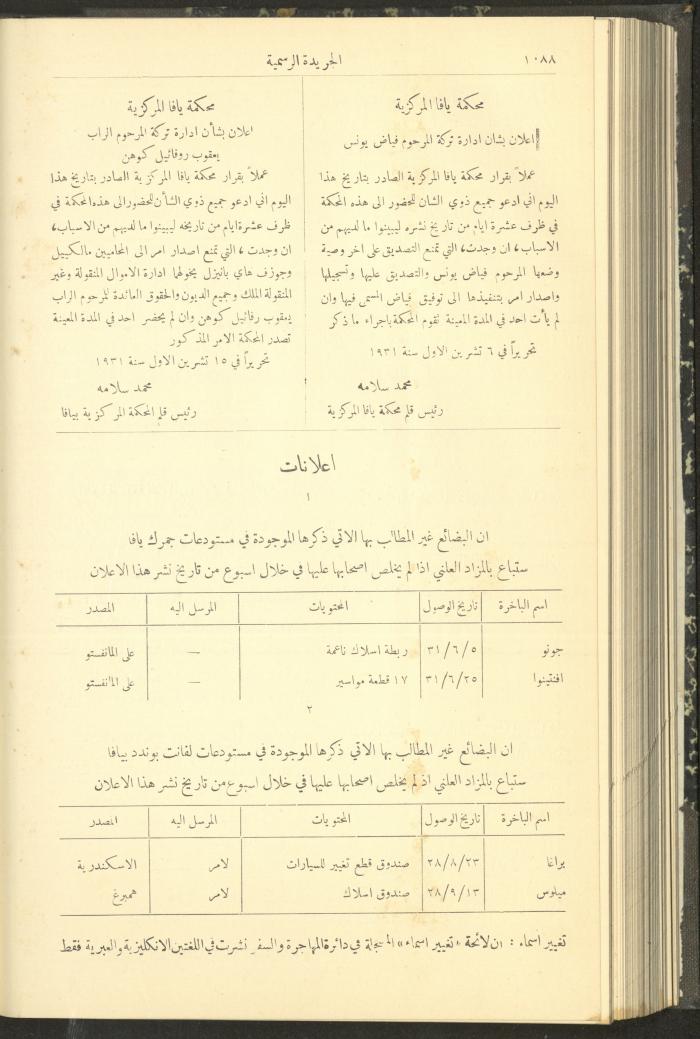 ١٠٨٨
الجريدة الرسمية
محكمة يافا المركزية
اعلان بشان ادارة تركة المرحوم فياض يونس
عملاً بقرار محكمة يافا المركزية الصادر بتاريخ هذا
اليوم اني ادعو جميع ذوي الشان للحضور الى هذه المحكمة
في ظرف عشرة ايام من تاريخ نشره ليبينوا ما لديهم من
الاسباب، ان وجدت، التي تمنع التصديق على اخر وصية
وضعها المرحوم فياض يونس والتصديق عليها وتسجيلها
واصدار امر بتنفيذها الى توفيق فياض المسمى فيها وان
لم يأت احد في المدة المعينة تقوم المحكمة باجراء ما ذكر
تحريراً في ٦ تشرين الاول سنة ١٩٣١
محمد سلامه
رئيس قلم محكمة يافا المركزية
محكمة يافا المركزية
اعلان بشأن ادارة تركة المرحوم الراب
يعقوب روفائيل كوهن
عملاً بقرار محكمة يافا المركزية الصادر بتاريخ هذا
اليوم اني ادعو جميع ذوي الشأن للحضور الى هذه المحكمة في
ظرف عشرة ايام من تاريخه ليبينوا ما لديهم من الاسباب،
ان وجدت، التي تمنع اصدار امر الى المحاميين مالكييل
وجوزف هاي بانيزل يخولهما ادارة الاموال المنقولة وغير
المنقولة الملك وجميع الديون والحقوق العائدة للمرحوم الراب
يعقوب رفائيل كوهن وان لم يحضر احد في المدة المعينة
تصدر المحكمة الامر المذكور
تحريراً في ١٥ تشرين الاول سنة ١٩٣١
محمد سلامه
رئيس قلم المحكمة المركزية بيافا
اعلانات
١
ان البضائع غير المطالب بها الاتي ذكرها الموجودة في مستودعات جمرك يافا
ستباع بالمزاد العلني اذا لم يخلص اصحابها عليها في خلال اسبوع من تاريخ نشر هذا الاعلان
اسم الباخرة تاريخ الوصول المحتويات المرسل اليه المصدر
جونو ٣١/٦/٥ ربطة اسلاك ناعمة — على المانفستو
افنتينوا ٣١/٦/٢٥ ١٧ قطعة مواسير — على المانفستو
٢
ان البضائع غير المطالب بها الاتي ذكرها الموجودة في مستودعات لفانت بوندد بيافا
ستباع بالمزاد العلني اذا لم يخلص اصحابها عليها في خلال اسبوع من تاريخ نشر هذا الاعلان
اسم الباخرة تاريخ الوصول المحتويات المرسل اليه المصدر
براغا ٢٨/٨/٢٣ صندوق قطع تغيير للسيارات لامر الاسكندرية
ميلوس ٢٨/٩/١٣ صندوق اسلاك لامر همبرغ
تغيير اسماء : ان لائحة «تغيير اسماء» المسجلة في دائرة المهاجرة والسفر نشرت في اللغتين الانكليزية والعبرية فقط